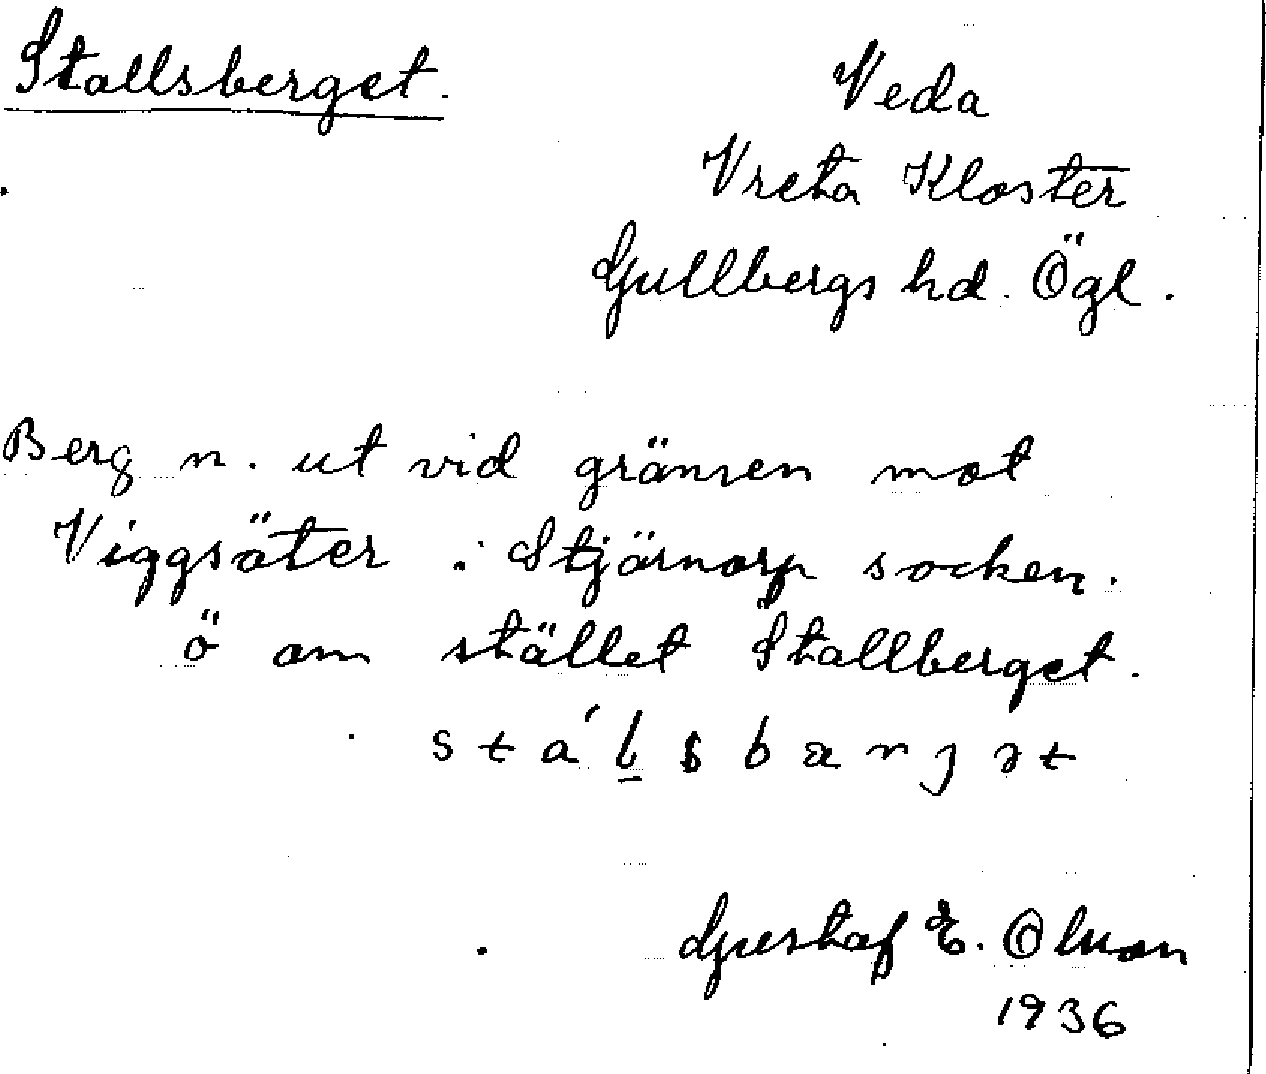 Stallsberget.
Veda
Vreta Kloster
Gullbergs hd. Ögl.
Berg n. ut vid gränsen mot
Viggsäter i Stjärnorp socken.
ö om stället Stallberget.
Gustaf E. Olsson
1936